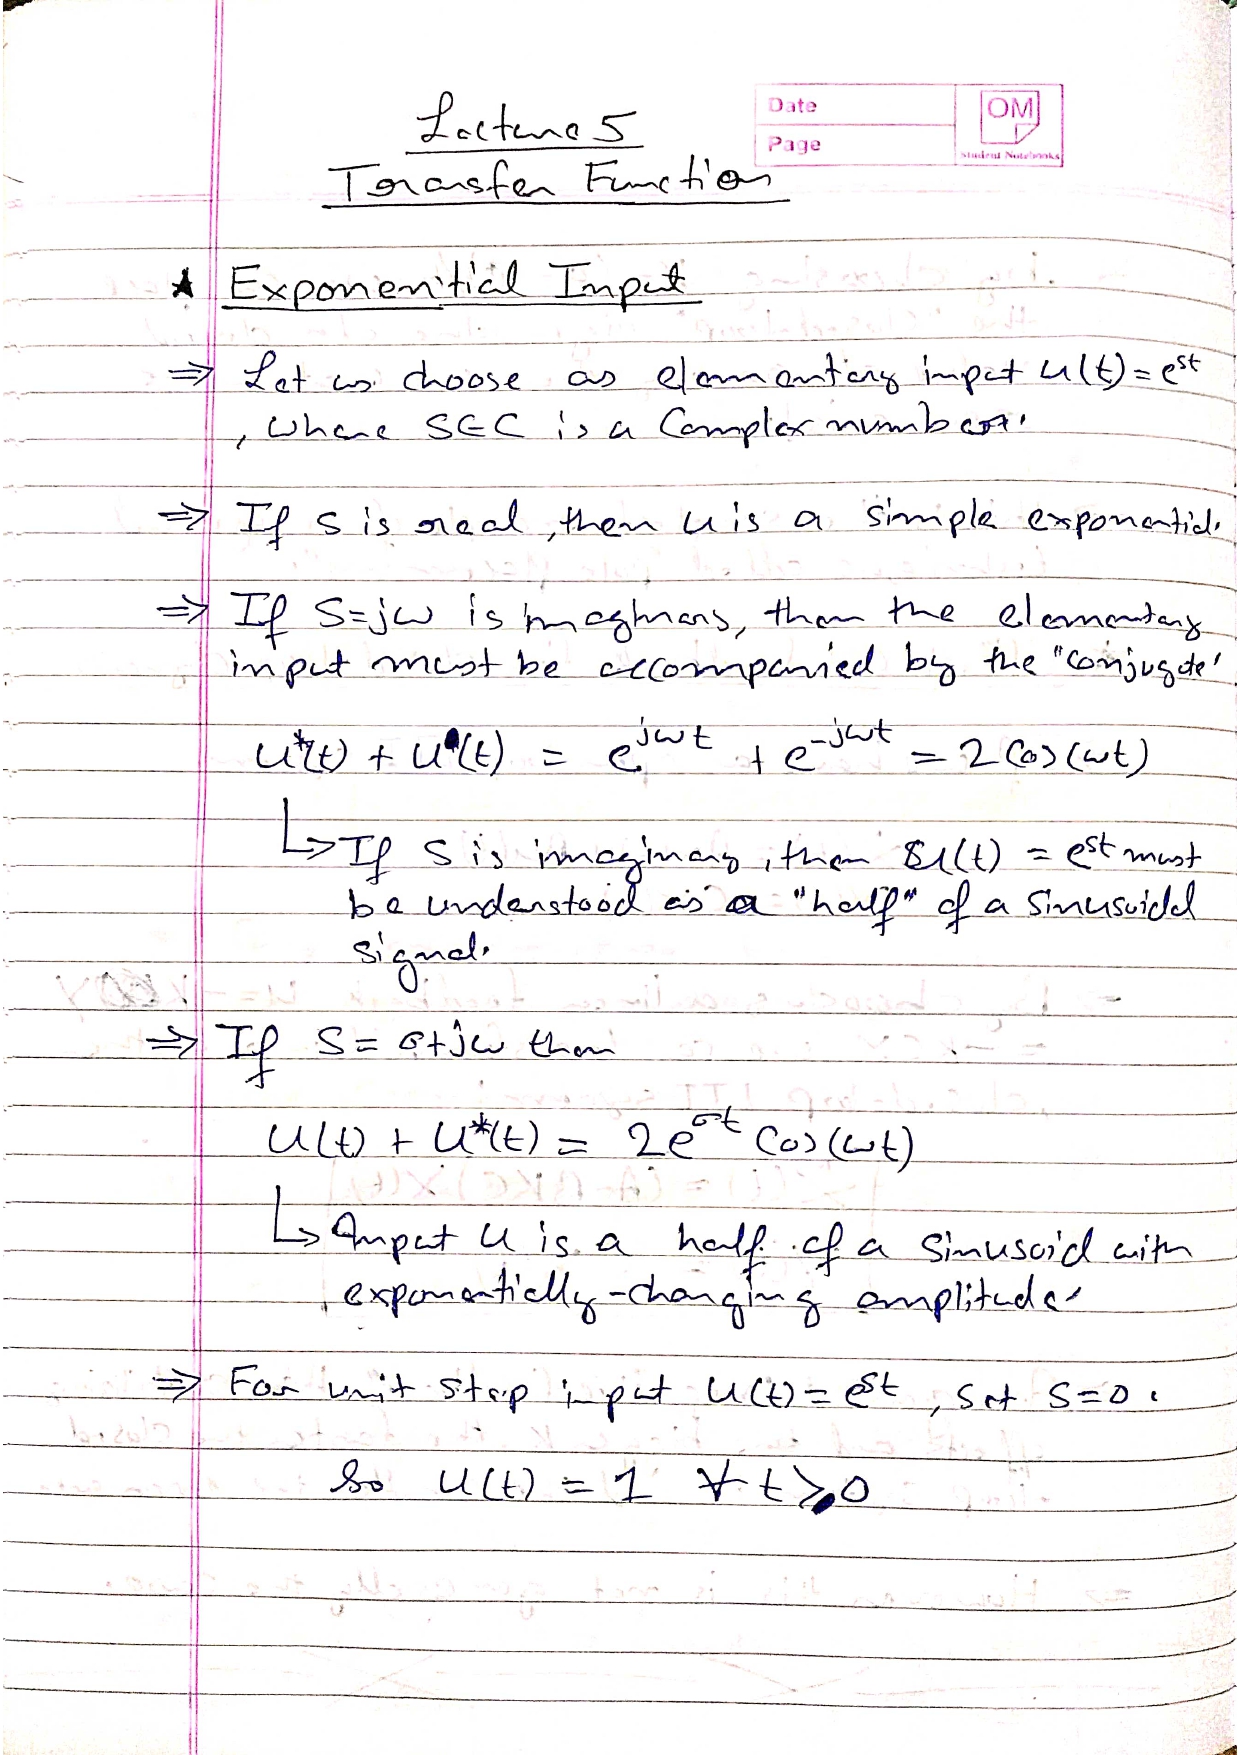 Lecture 5
Date
OM
Page
Student Notebooks
Transfer Function
★ Exponential Input
⇒ Let us choose as elementary input u(t) = e^st
, where S∈C is a Complex number.
⇒ If s is real, then u is a simple exponential.
⇒ If S=jω is imaginary, then the elementary
input must be accompanied by the "conjugate"
u*(t) + u(t) = e^jωt + e^-jωt = 2 Cos(ωt)
↳ If S is imaginary, then u(t) = e^st must
be understood as a "half" of a sinusoidal
signal.
⇒ If S = σ+jω then
u(t) + u*(t) = 2e^σt Cos(ωt)
↳ Input u is a half of a sinusoid with
exponentially-changing amplitude.
⇒ For unit step input u(t) = e^st, set S=0.
So u(t) = 1 ∀ t ≥ 0